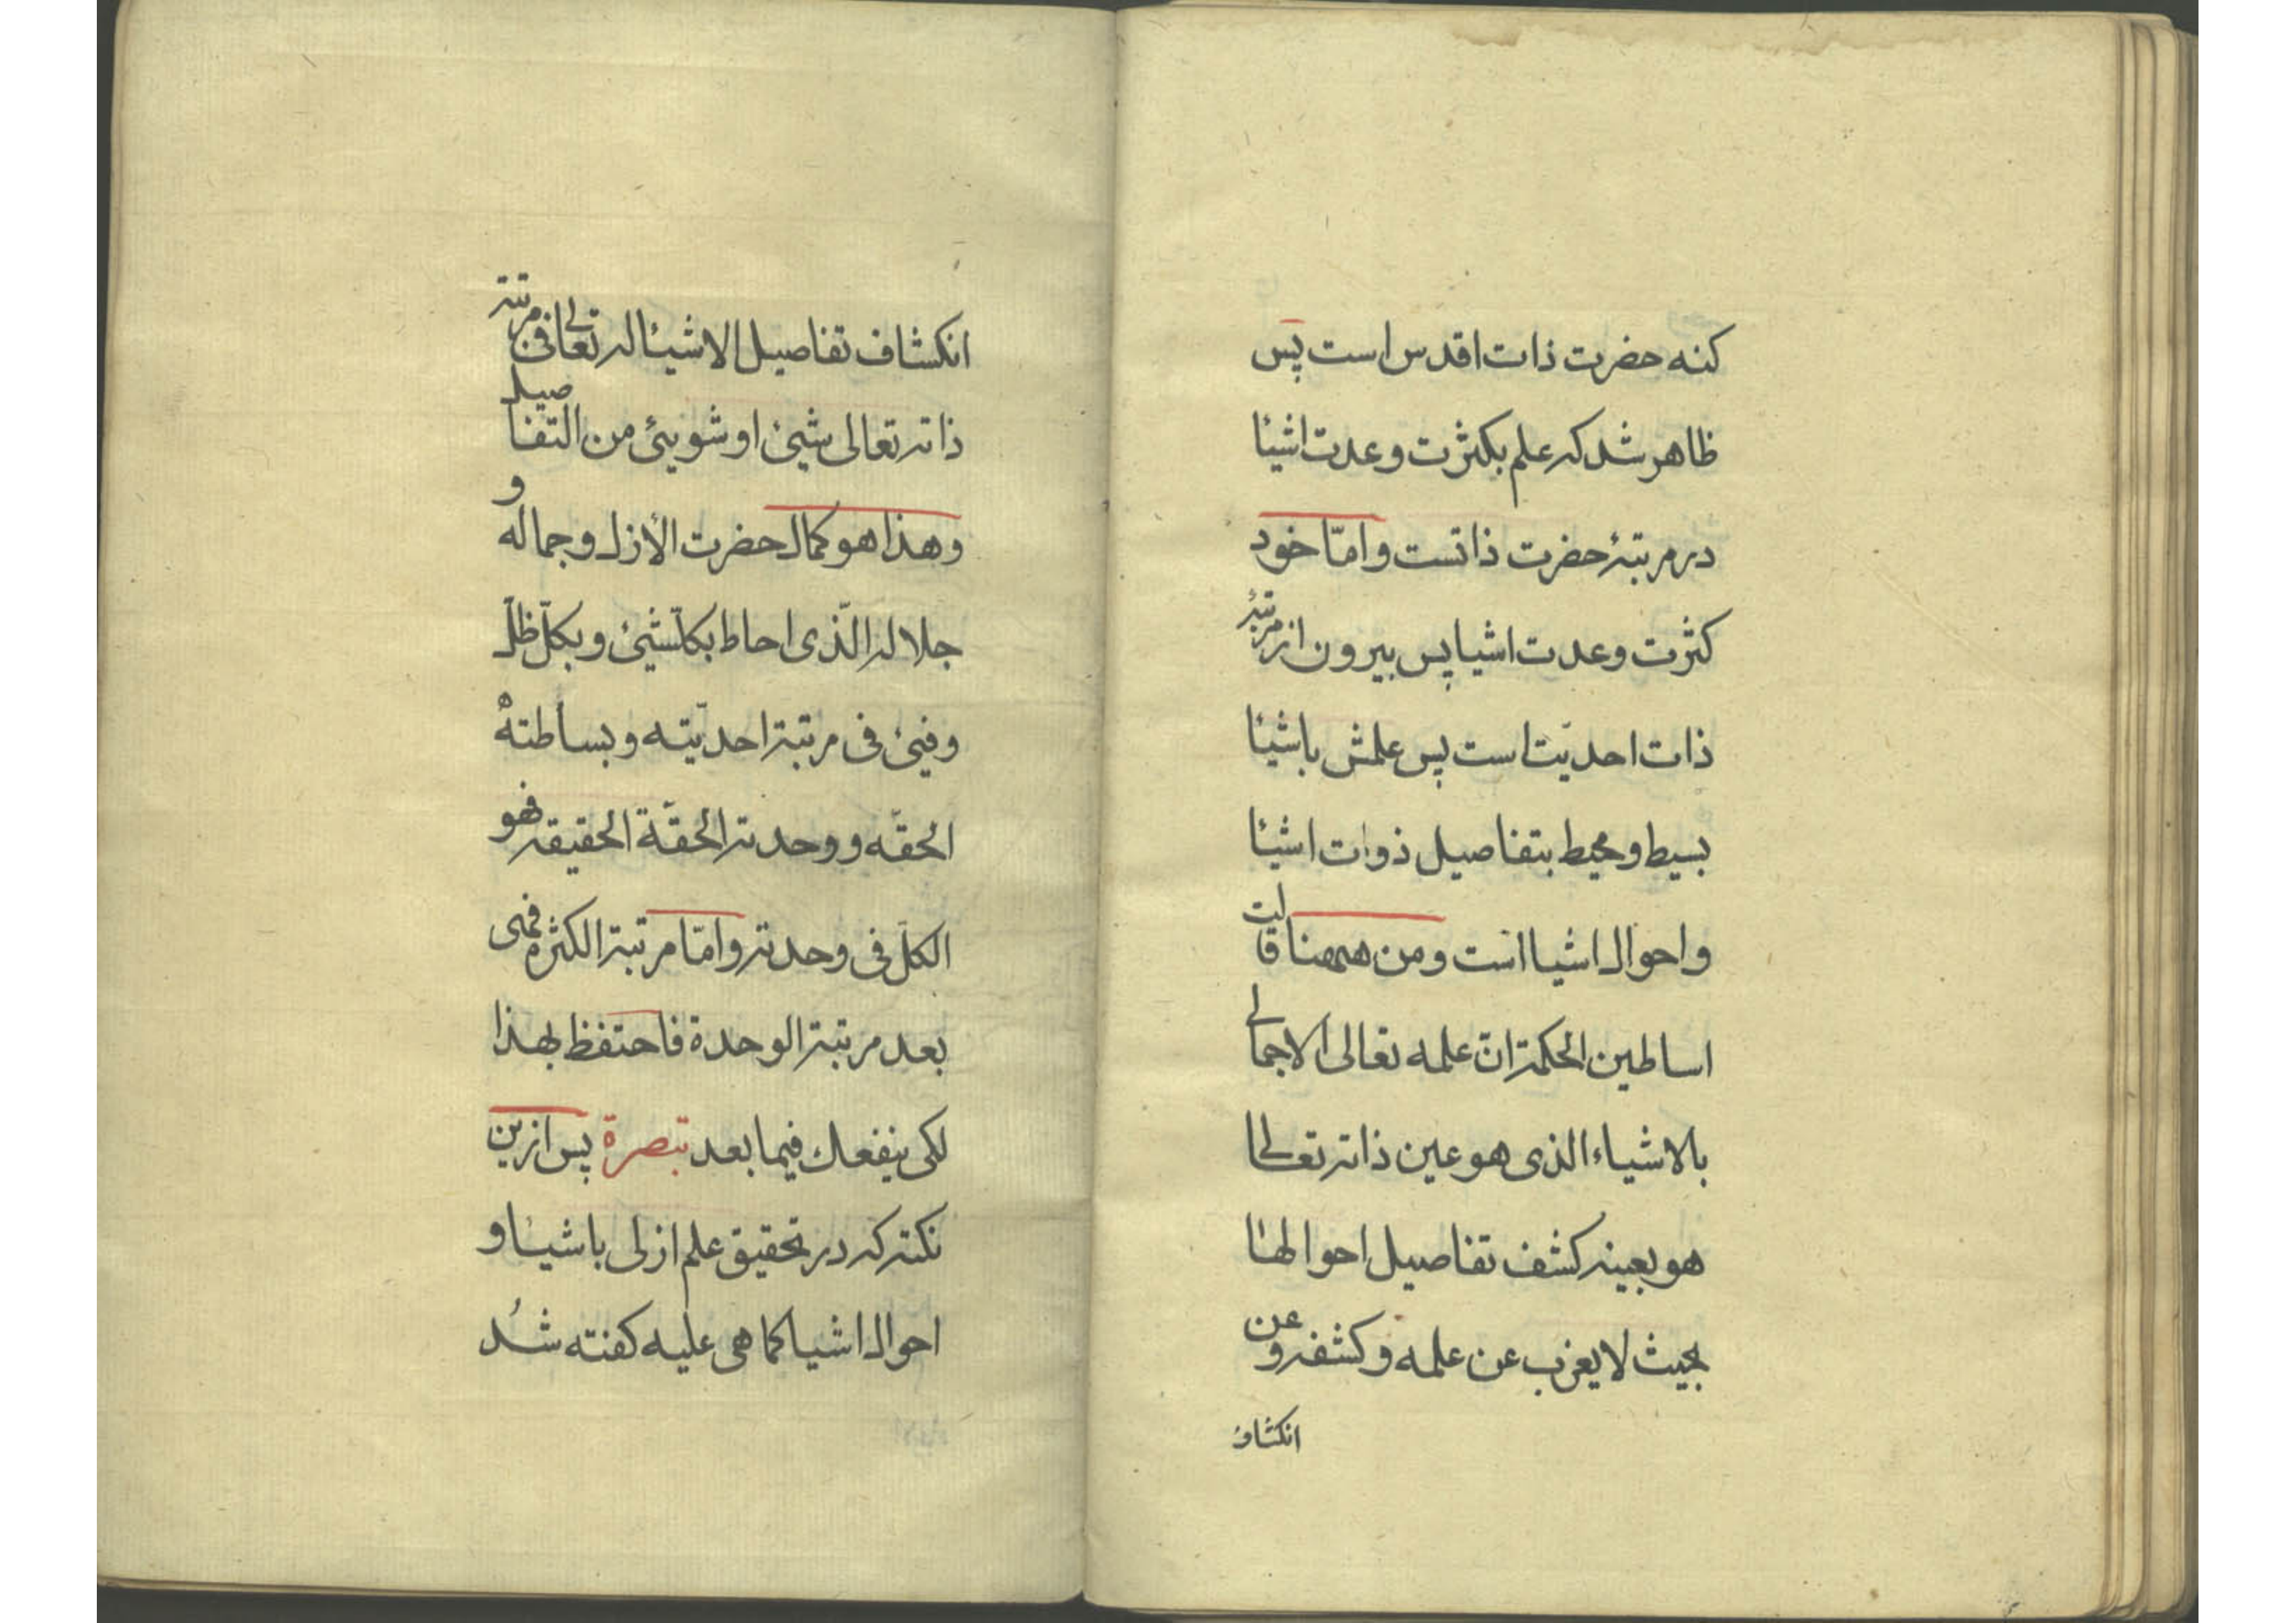 كنه حضرت ذات اقدس است پس
ظاهر شد كه علم بكثرت وعدت اشيا
در مرتبهٔ حضرت ذاتست وامّا خود
كثرت وعدت اشيا پس بيرون از مرتبهٔ
ذات احديّت است پس علمش باشيا
بسيط ومحيط بتفاصيل ذوات اشيا
واحوال اشيا است ومن ههنا قالت
اساطين الحكمة انّ علمه تعالى الاجمالى
بالاشياء الذى هو عين ذاته تعالى
هو بعينه كشف تفاصيل احوالها
بحيث لا يعزب عن علمه وكشفه وعن
انكشاف
انكشاف تفاصيل الاشيا له تعالى فى مرتبة
ذاته تعالى شيئ او شويئ من التفاصيل
وهذا هو كمال حضرت الأزل وجماله و
جلاله الّذى احاط بكلّشيئ وبكلّ ظلّ
وفيئ فى مرتبة احديّته وبساطته
الحقّه ووحدته الحقّة الحقيقه فهو
الكلّ فى وحدته وامّا مرتبة الكثرة فهى
بعد مرتبة الوحدة فاحتفظ بهذا
لكى ينفعك فيما بعد تبصرة پس ازين
نكته كه در تحقيق علم ازلى باشيا و
احوال اشيا كما هى عليه كفته شُد